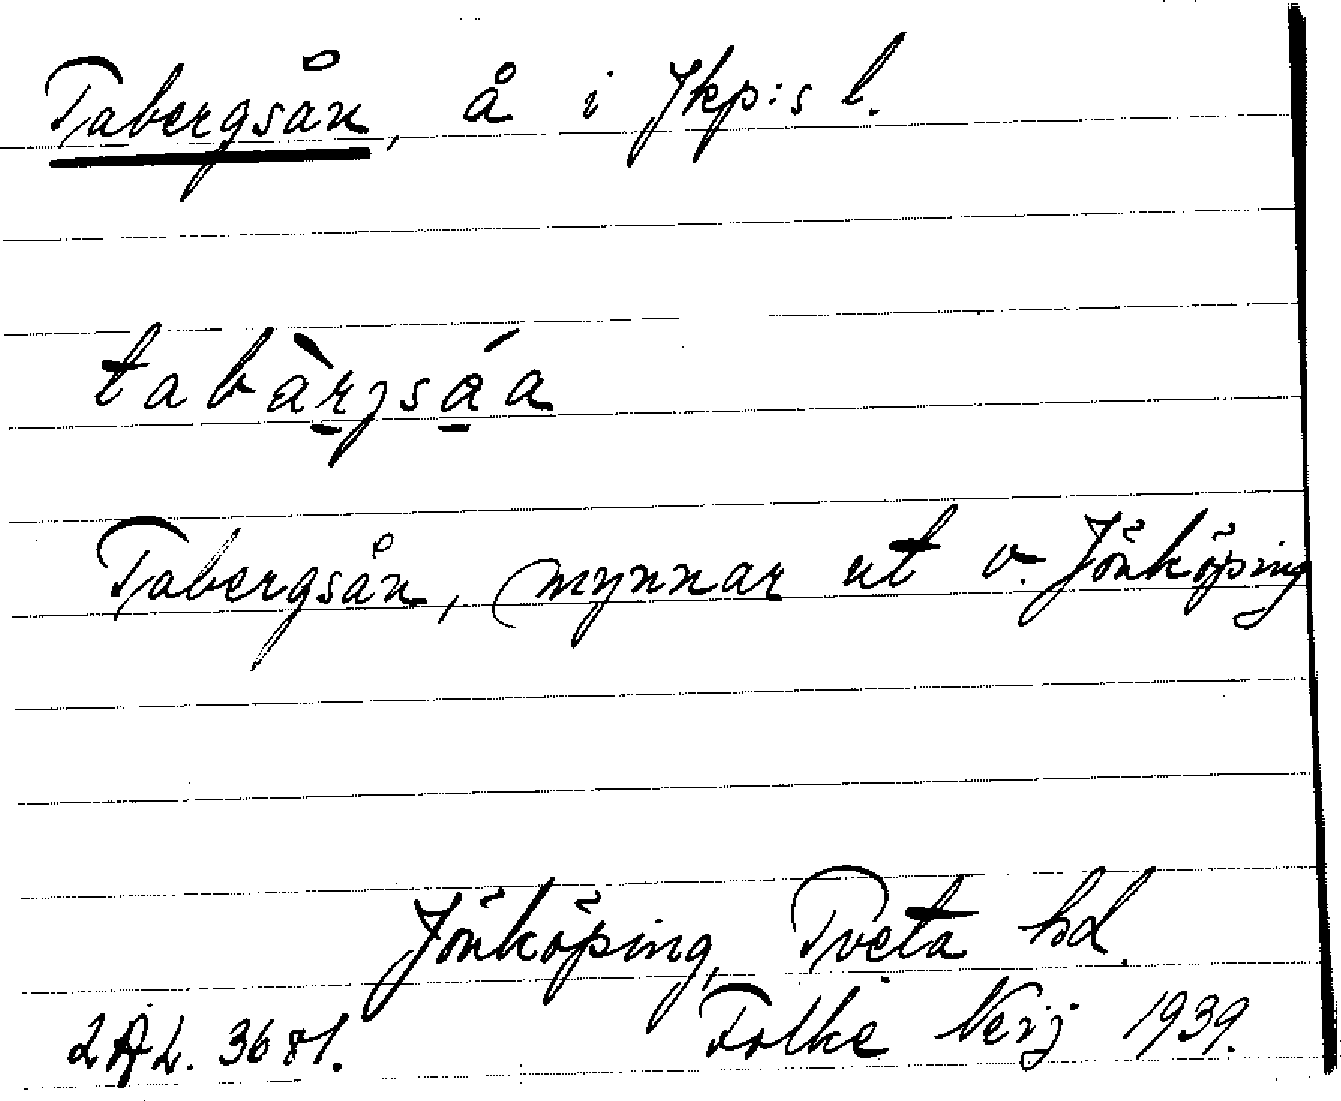 Tabergsån, å i Jkp:s l.
tabàrjsáa
Tabergsån, mynnar ut v. Jönköping
Jönköping, Tveta hd.
LAL. 3681. Folke Verj 1939.